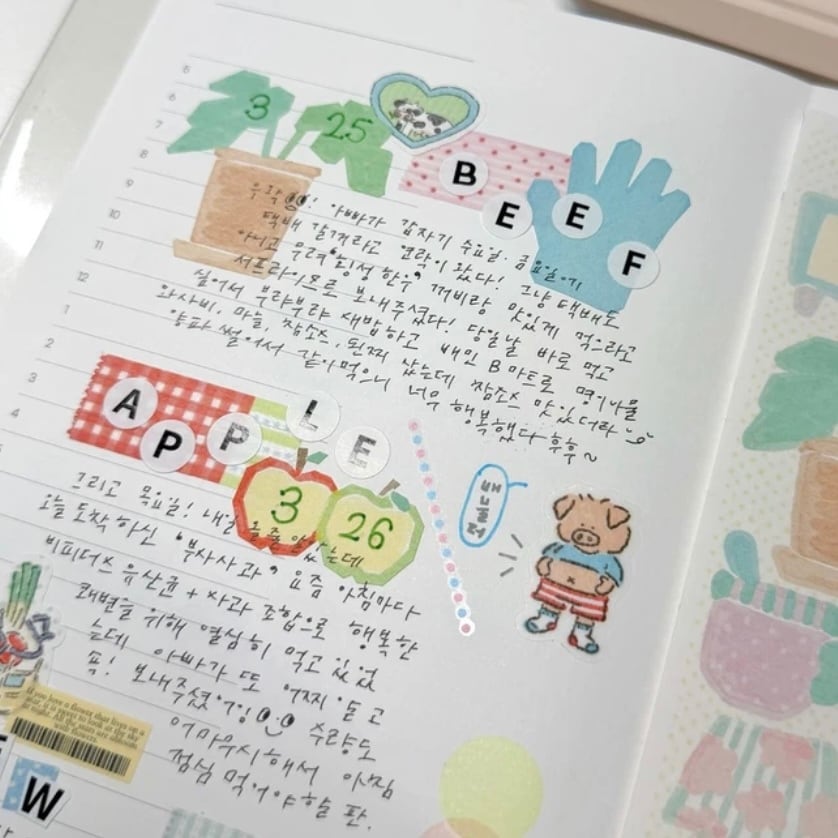 5
6
7
8
9
10
11
12
1
2
3
4
3
25
BEEF
우왁! 아빠가 갑자기 수요일. 금요일이
택배 갈거라고 연락이 왔다! 그냥 택배도
아니고 무려 '횡성한우' 꺼비랑 맛있게 먹으라고
서프라이즈로 보내주셨다! 당일날 바로 먹고
싶어서 부랴부랴 새밥하고 배민 B마트로 명이나물
와사비, 마늘, 참소스, 된찌 샀는데 참소스 맛있더라
양파 썰어서 같이먹으니 너무 행복했다 후후~
APPLE
3
26
그리고 목요일! 내일 올줄 알았는데
오늘 도착하신 '부사사과' 요즘 아침마다
비피더스 유산균 + 사과 조합으로 행복한
쾌변을 위해 열심히 먹고 있었
는데 아빠가 또 어찌 알고
보내주셨
수량도
어마무시해서 아침
점심 먹어야할 판.
W